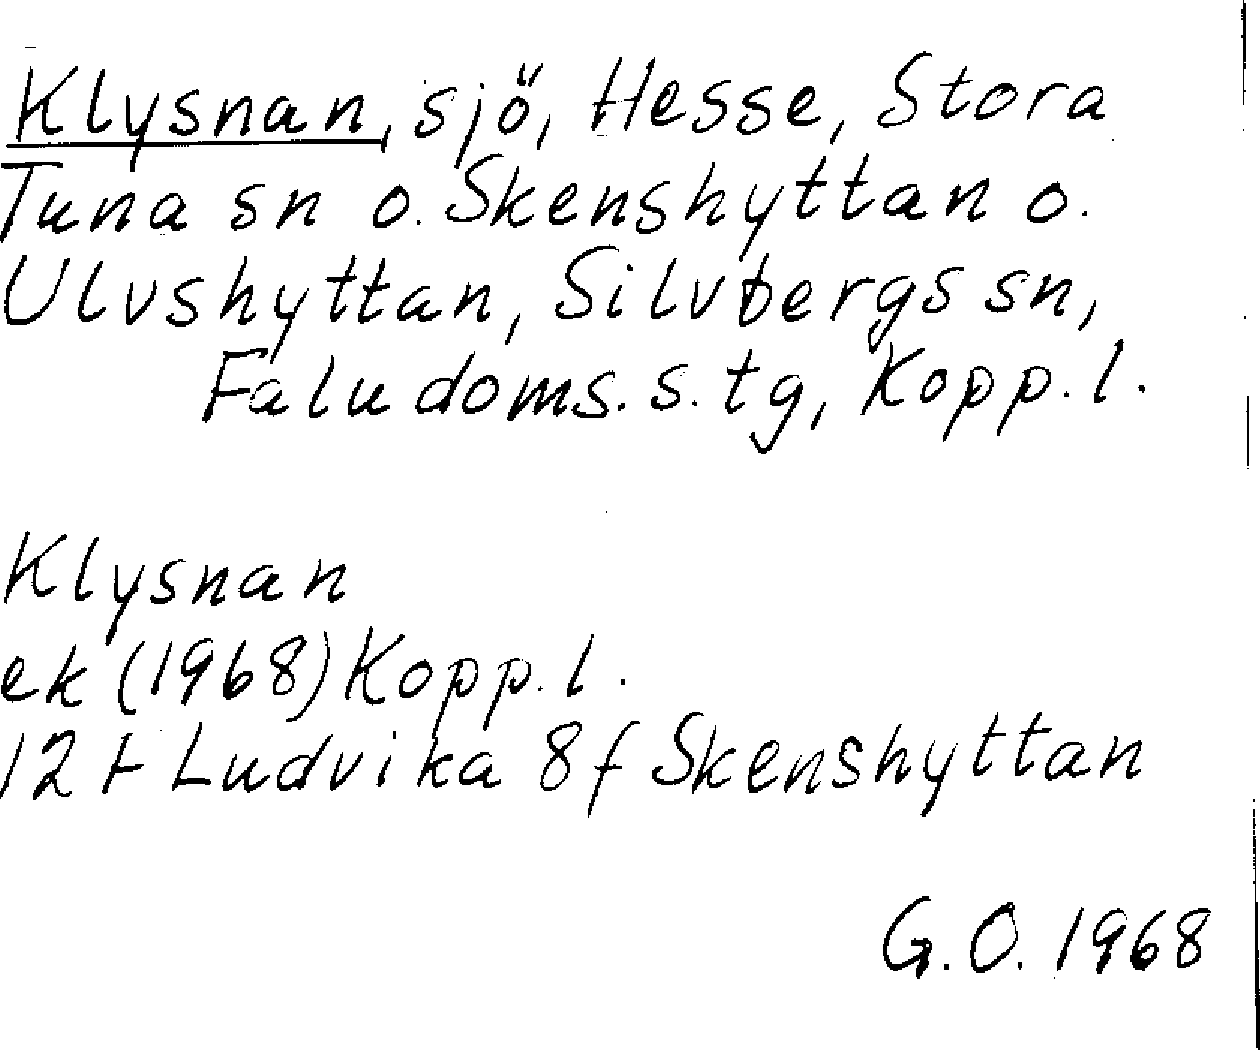 Klysnan, sjö, Hesse, Stora
Tuna sn o. Skenshyttan o.
Ulvshyttan, Silvbergs sn,
Falu doms. s. tg, Kopp. l.
Klysnan
ek (1968) Kopp. l.
12 F Ludvika 8 f Skenshyttan
G. O. 1968